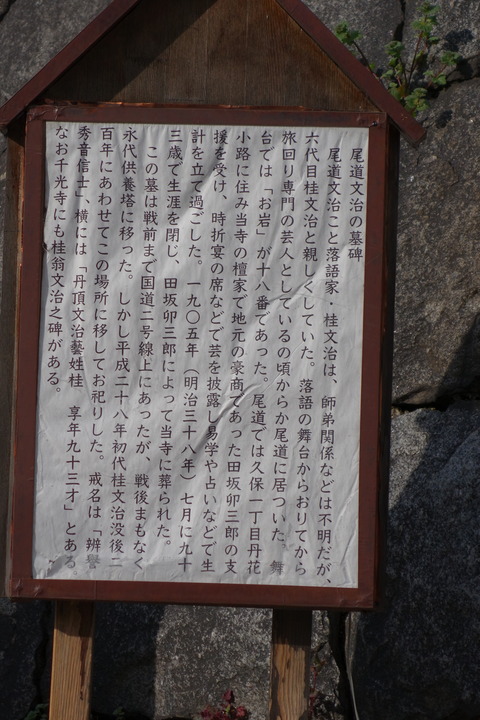 尾道文治の墓碑
尾道文治こと落語家・桂文治は、師弟関係などは不明だが、
六代目桂文治と親しくしていた。落語の舞台からおりてから
旅回り専門の芸人としているの頃からか尾道に居ついた。舞
台では「お岩」が十八番であった。尾道では久保一丁目丹花
小路に住み当寺の檀家で地元の豪商であった田坂卯三郎の支
援を受け、時折宴の席などで芸を披露し易学や占いなどで生
計を立て過ごした。一九〇五年(明治三十八年)七月に九十
三歳で生涯を閉じ、田坂卯三郎によって当寺に葬られた。
この墓は戦前まで国道二号線上にあったが、戦後まもなく
永代供養塔に移った。しかし平成二十八年初代桂文治没後二
百年にあわせてこの場所に移してお祀りした。戒名は「辨誉
秀音信士」、横には「丹頂文治藝姓桂 享年九十三才」とある。
なお千光寺にも桂翁文治之碑がある。